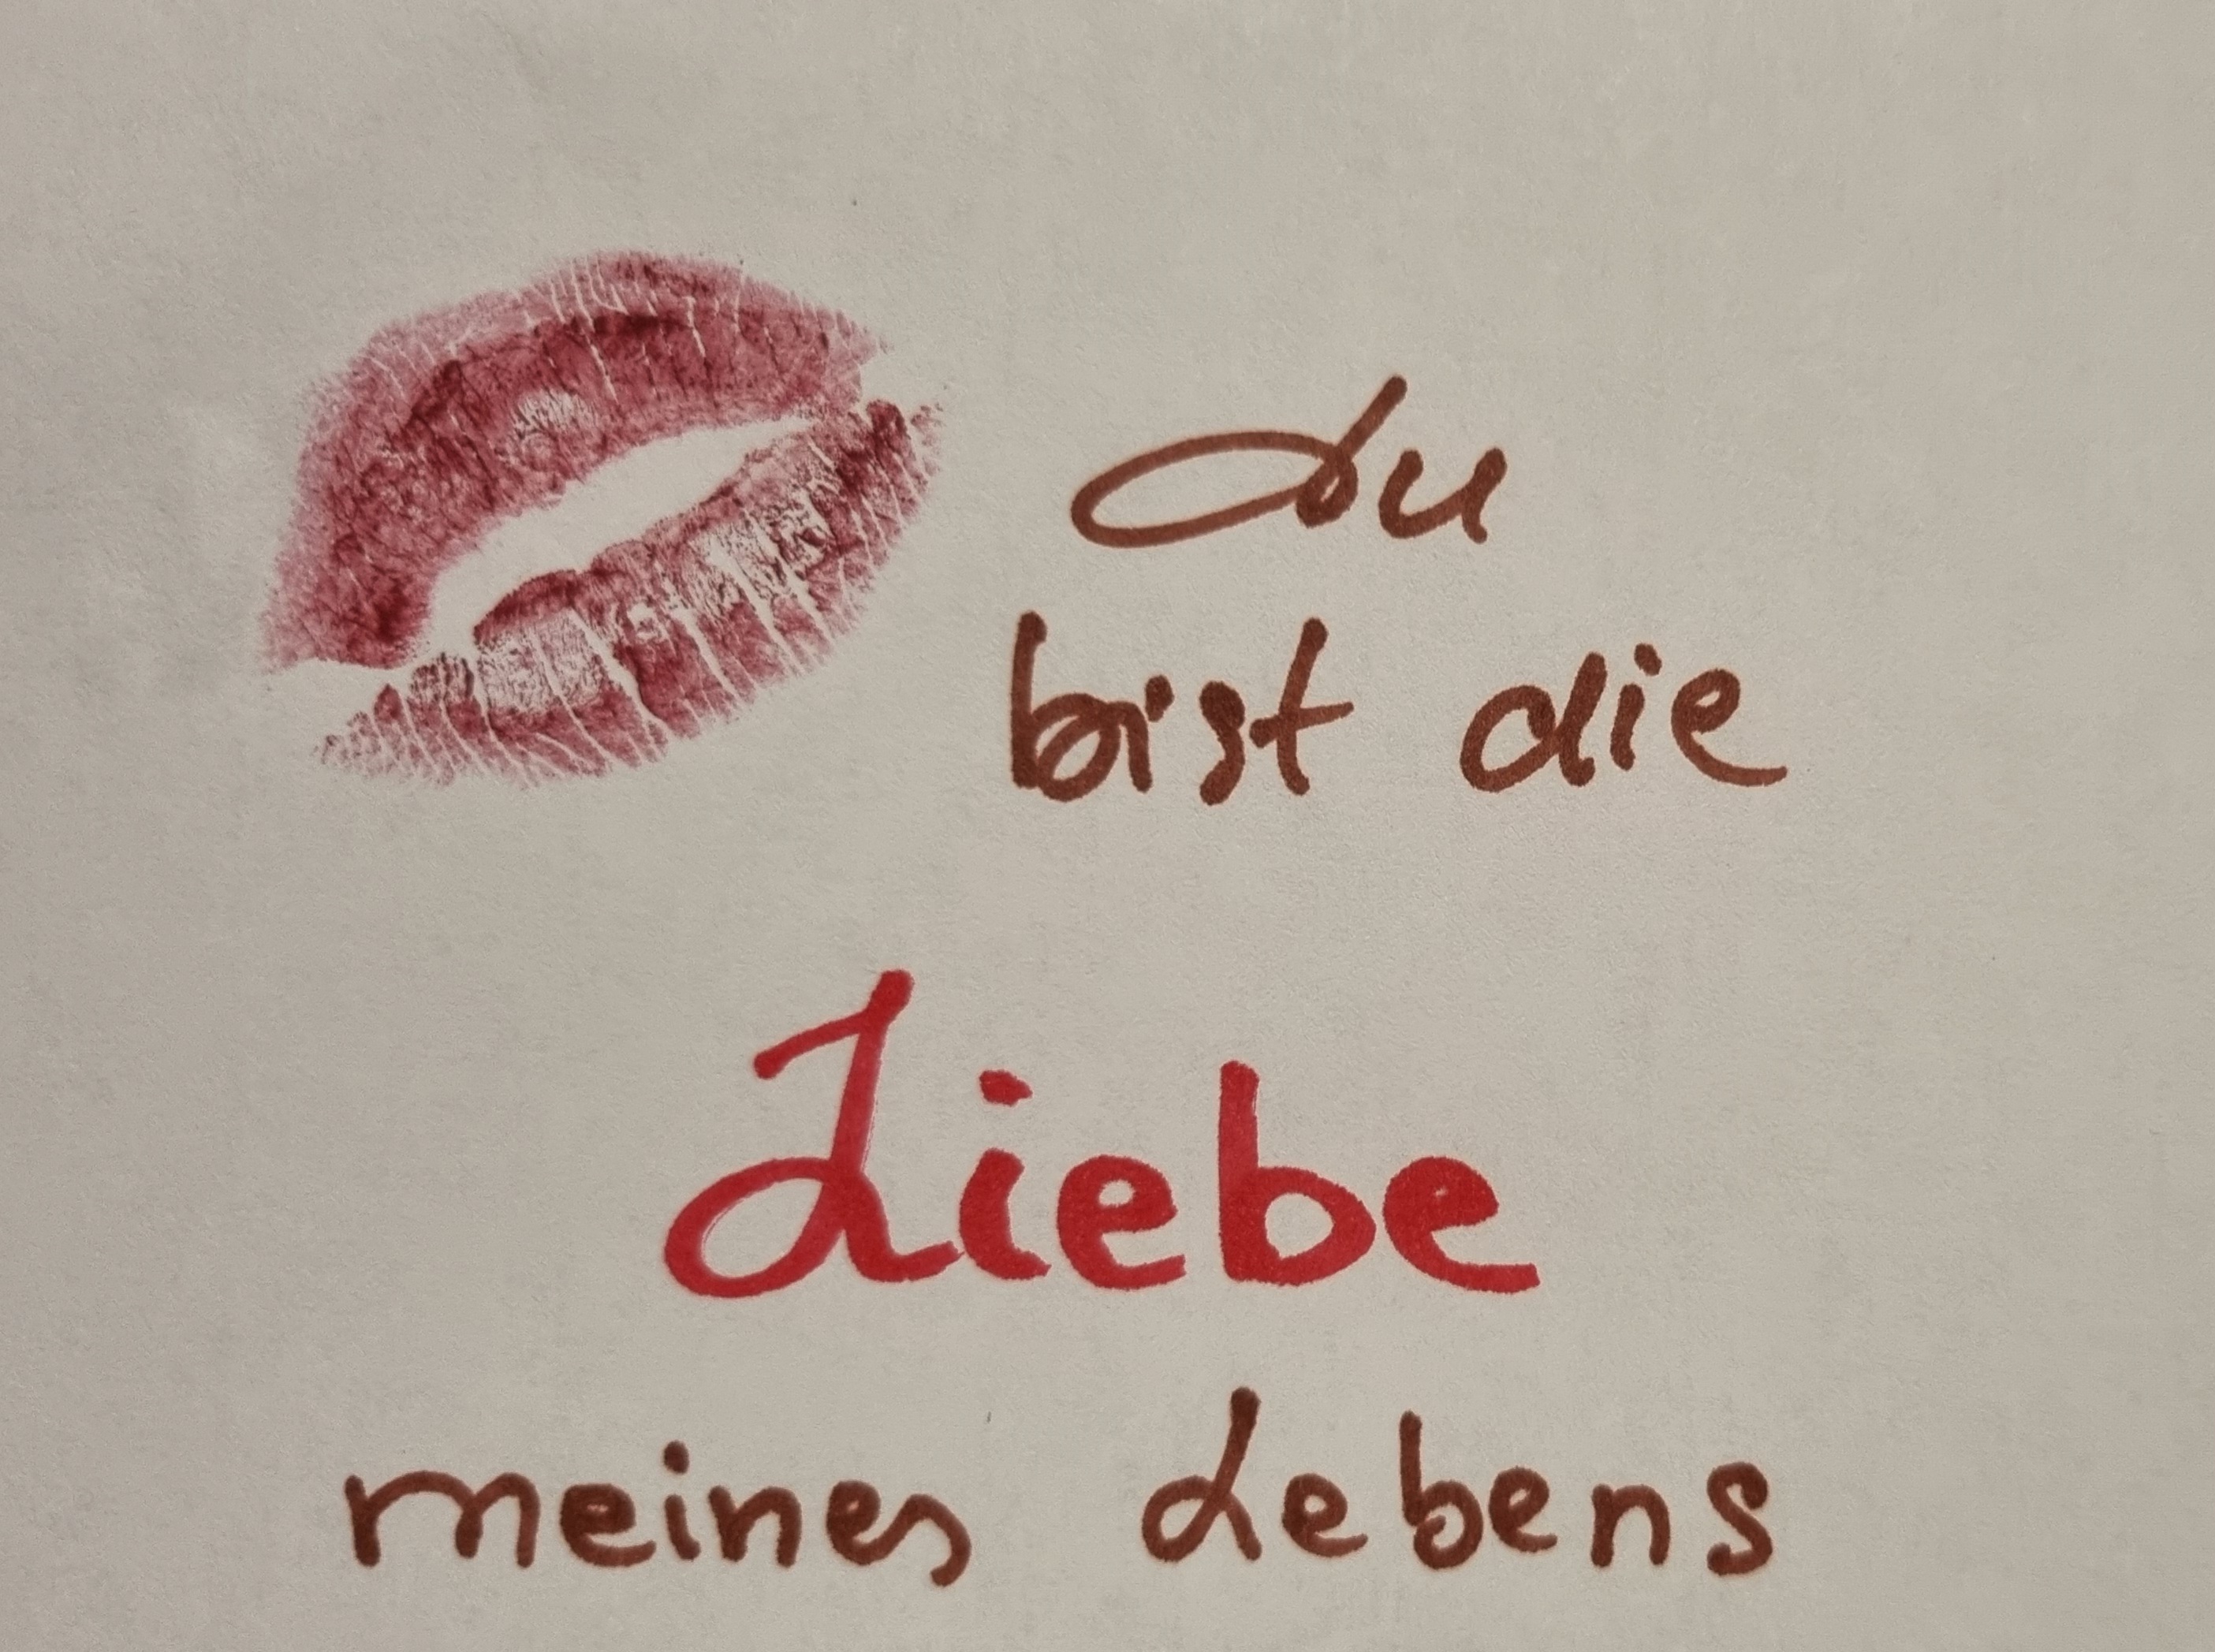 du
bist die
Liebe
meines Lebens